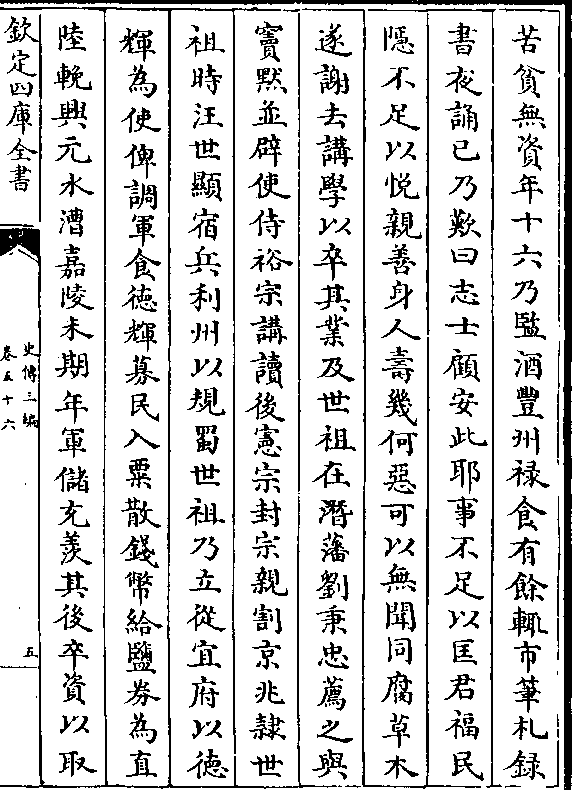 苦貧無資年十六乃監酒豐州禄食有餘輒市筆札録
書夜誦已乃歎曰志士顧安此耶事不足以匡君福民
隠不足以悦親善身人壽幾何惡可以無聞同腐草木
遂謝去講學以卒其業及世祖在潛藩劉秉忠薦之與
竇黙並辟使侍裕宗講讀後憲宗封宗親割京兆隷世
祖時汪世顯宿兵利州以規蜀世祖乃立從宜府以徳
輝為使俾調軍食徳輝募民入粟散錢幣給鹽劵為直
陸輓興元水漕嘉陵未期年軍儲充羨其後卒資以取
欽定四庫全書
史傳三編
卷五十六
五